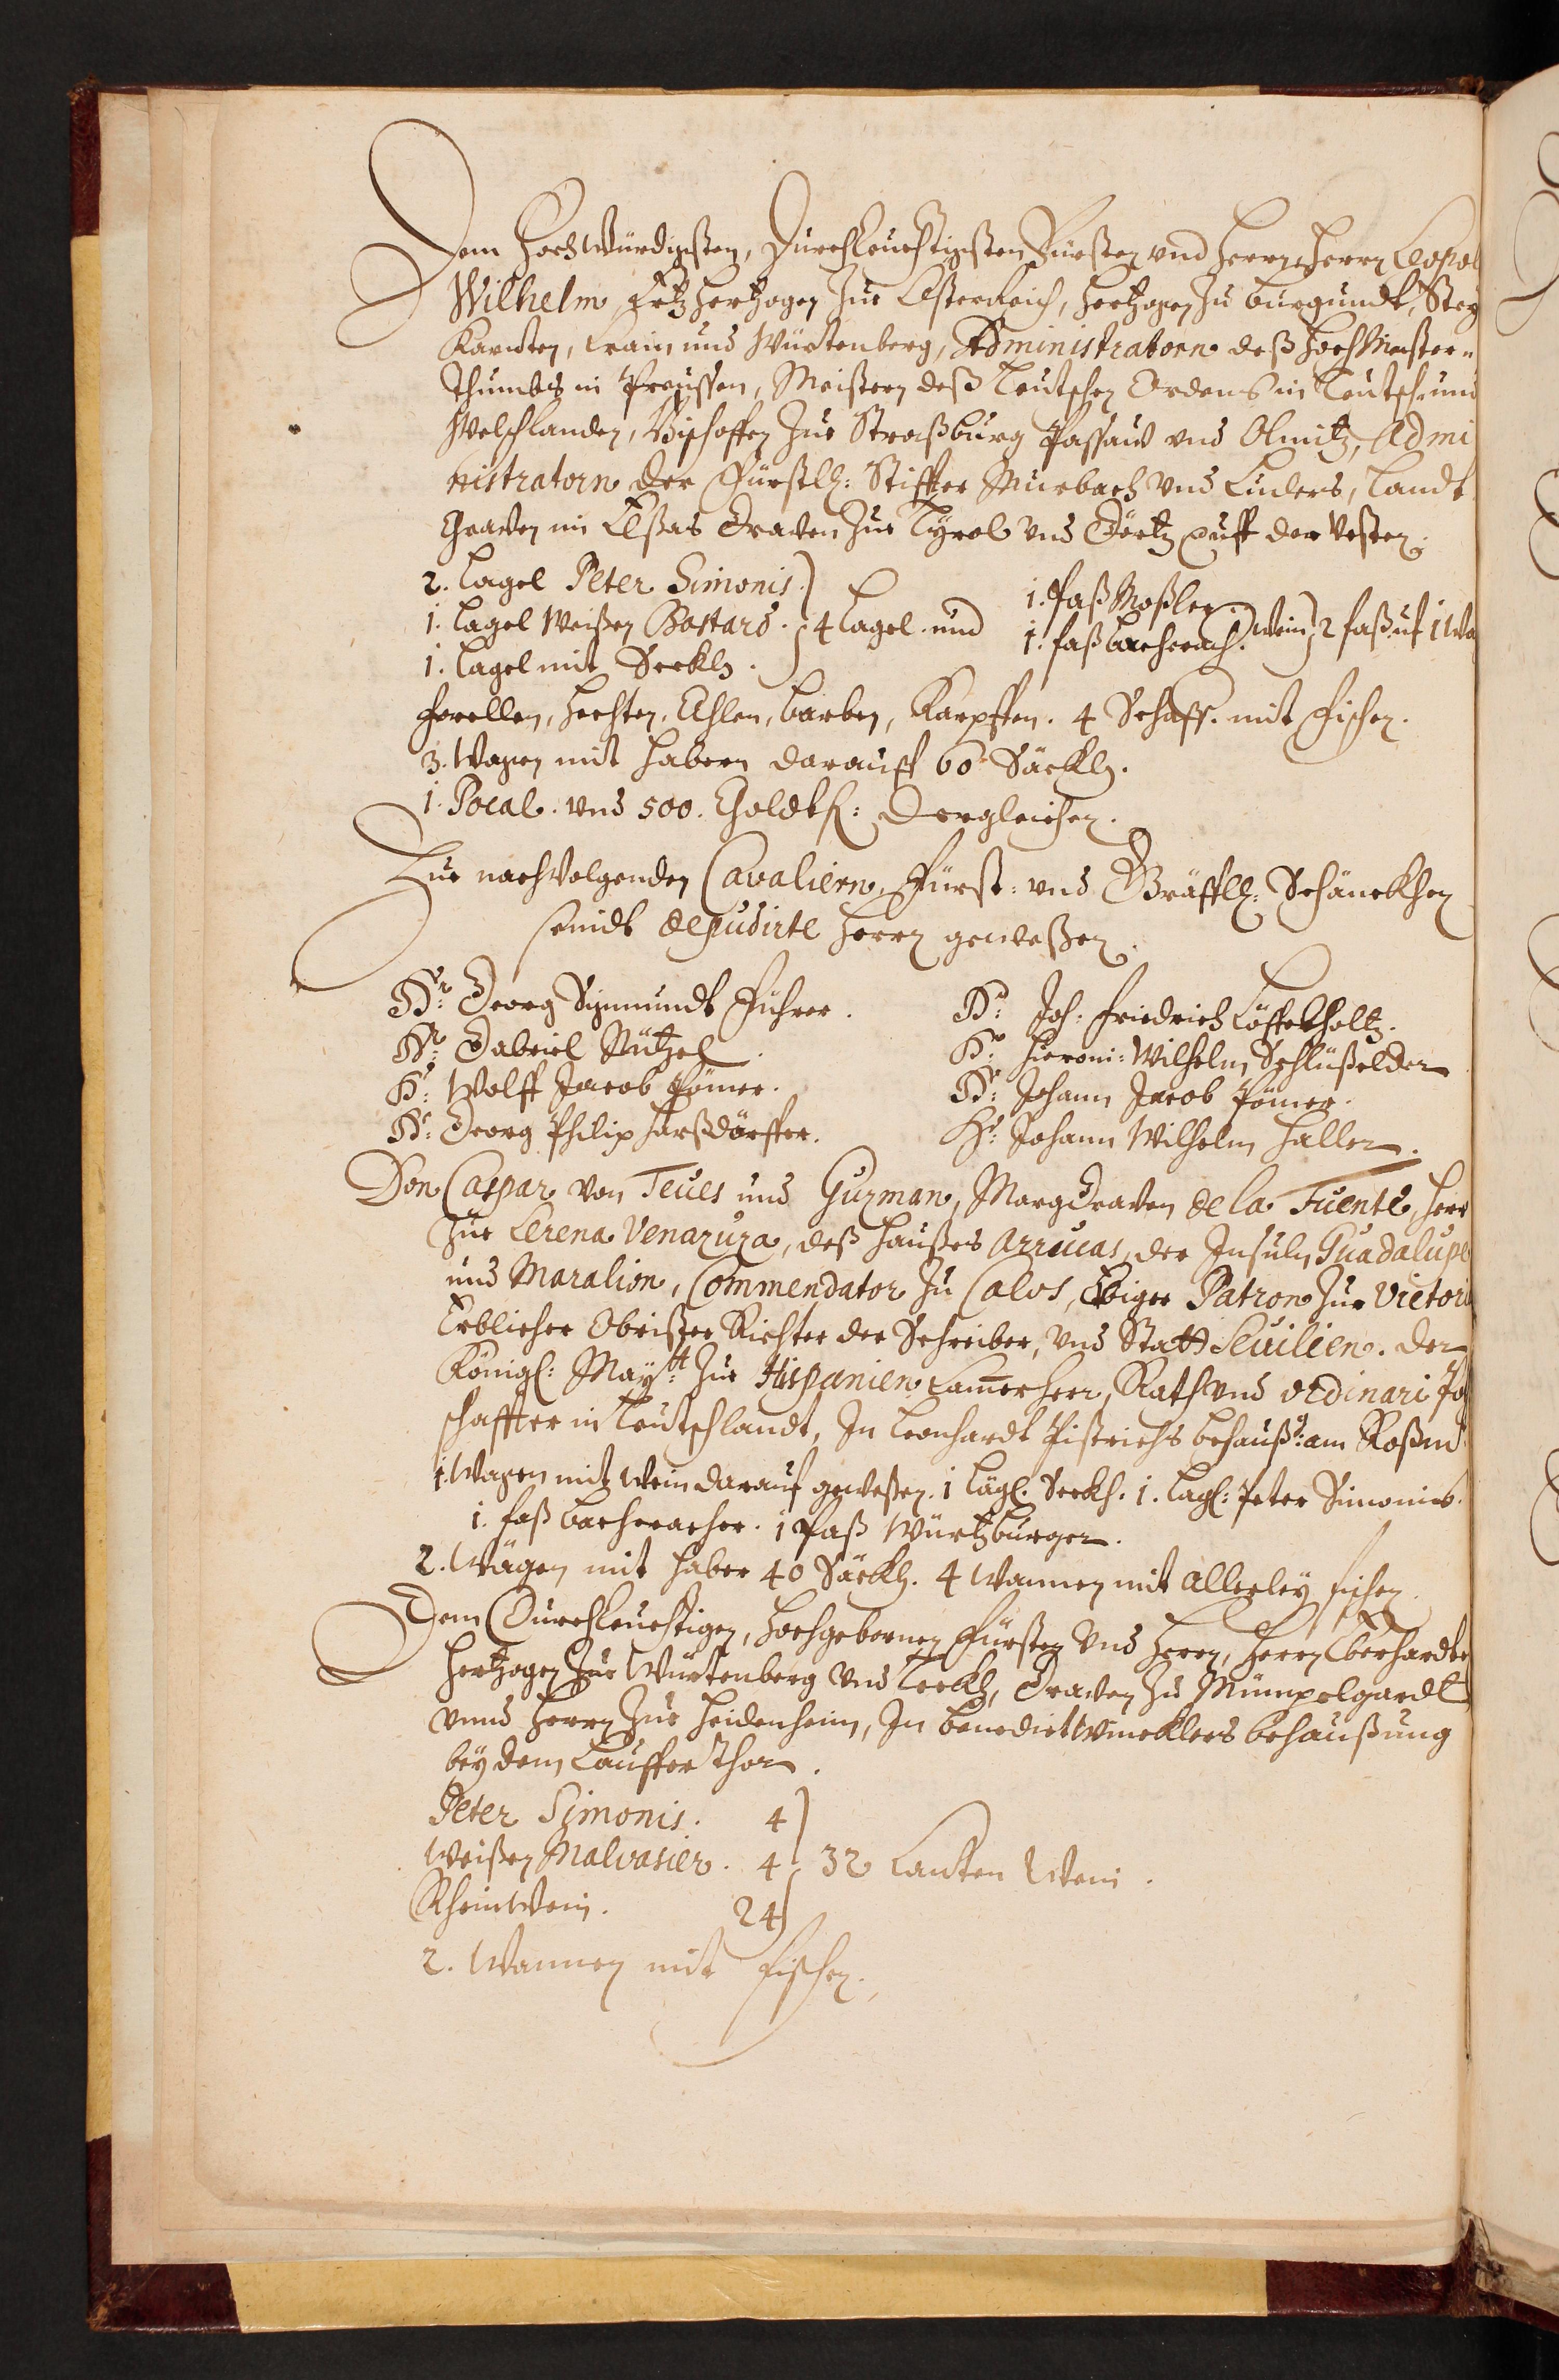 Dem Hochwürdigsten, Durchleuchtigsten Fürsten vnd Herrn Herrn Leopol
Wilhelm, Ertzhertzogen Zue Össterreich, Hertzogen Zu Burgundt, Steÿ
Kärndten, Crain und Würtenberg, Administratorn deß HochMeister-
Thumbs in Preussen, Meistern deß Teutschen Ordens in Teutsch und
Welschlanden, Bischoffen Zue Straßburg Passaw vnd Olmitz, Admi
nistratorn der Fürstlh: Stiffter Murbach vnd Luders, Landt
Graven im Elsas Graven Zue Tÿrol vnd Görtz auff der Vesten.
2. Lagel Peter Simonis.
1. Lagel Weißen Bastard. 4 Lagel und 1. Faß Moßler 1. Faß Bacherach. Wein 2 Faß uf 1 Wa
1. Lagel mit Seckh.
Forellen, Hechten, Ehlen, Barben, Karpffen. 4 Schaff mit Fischen.
3. Wagen mit Habern darauff 60 Säckh.
1. Pocal. vnd 500. Goldtfl: dergleichen.
Zue nachvolgenden Cavaliern, Fürst: vnd Gräffll: Schänckhen
seindt depudirte Herrn geweßen.
Hr: Georg Sigmundt Führer. Hr: Joh: Friedrich Löffelholtz.
Hr: Gabriel Nützel. Hr: Hieroni: Wilhelm Schlüßelder
Hr: Wolff Jacob Pömer. Hr: Johann Jacob Pömer.
Hr: Georg Philip Harßdörffer. Hr: Johann Wilhelm Haller.
Don Caspar von Teues und Guzman, MargGraven de la Fuente, Herr
Zue Lerena Venazuza, deß Haußes Arrucas, der Insuln Guadalupe
und Maralion, Commendator Zu Calos, Ewiger Patron Zue Victori
Erblicher Obrister Richter der Schreiber, vnd Statt Seuilien. der
Königl: Maytt: Zue Hispanien Cammerherr, Rath vnd ordinari Po
schaffter in Teutschlandt, In Leonhardt Pistrichs Behauß: am Roßm
1. Wagen mit Wein darauf geweßen. 1 Lägl. Seckh. 1. Lagl: Peter Simonis.
1. Faß Bacheracher. 1 Faß Würtzburger.
2. Wägen mit Haber 40 Säckh. 4 Wannen mit allerleÿ fischen.
Dem Durchleuchtigen, Hochgebornen Fürsten vnd Herrn, Herrn Eberhardte
Hertzogen Zue Würtenberg vnd Teckh, Graven Zu Mümpelgardt
vnnd Herrn Zue Heidenheim, In Benedict Wincklers Behaußung
beÿ dem Lauffer Thor.
Peter Simonis. 4
Weißen Malvasier. 4 32 Kanten Wein.
Rheinwein. 24
2. Wannen mit Fischen.